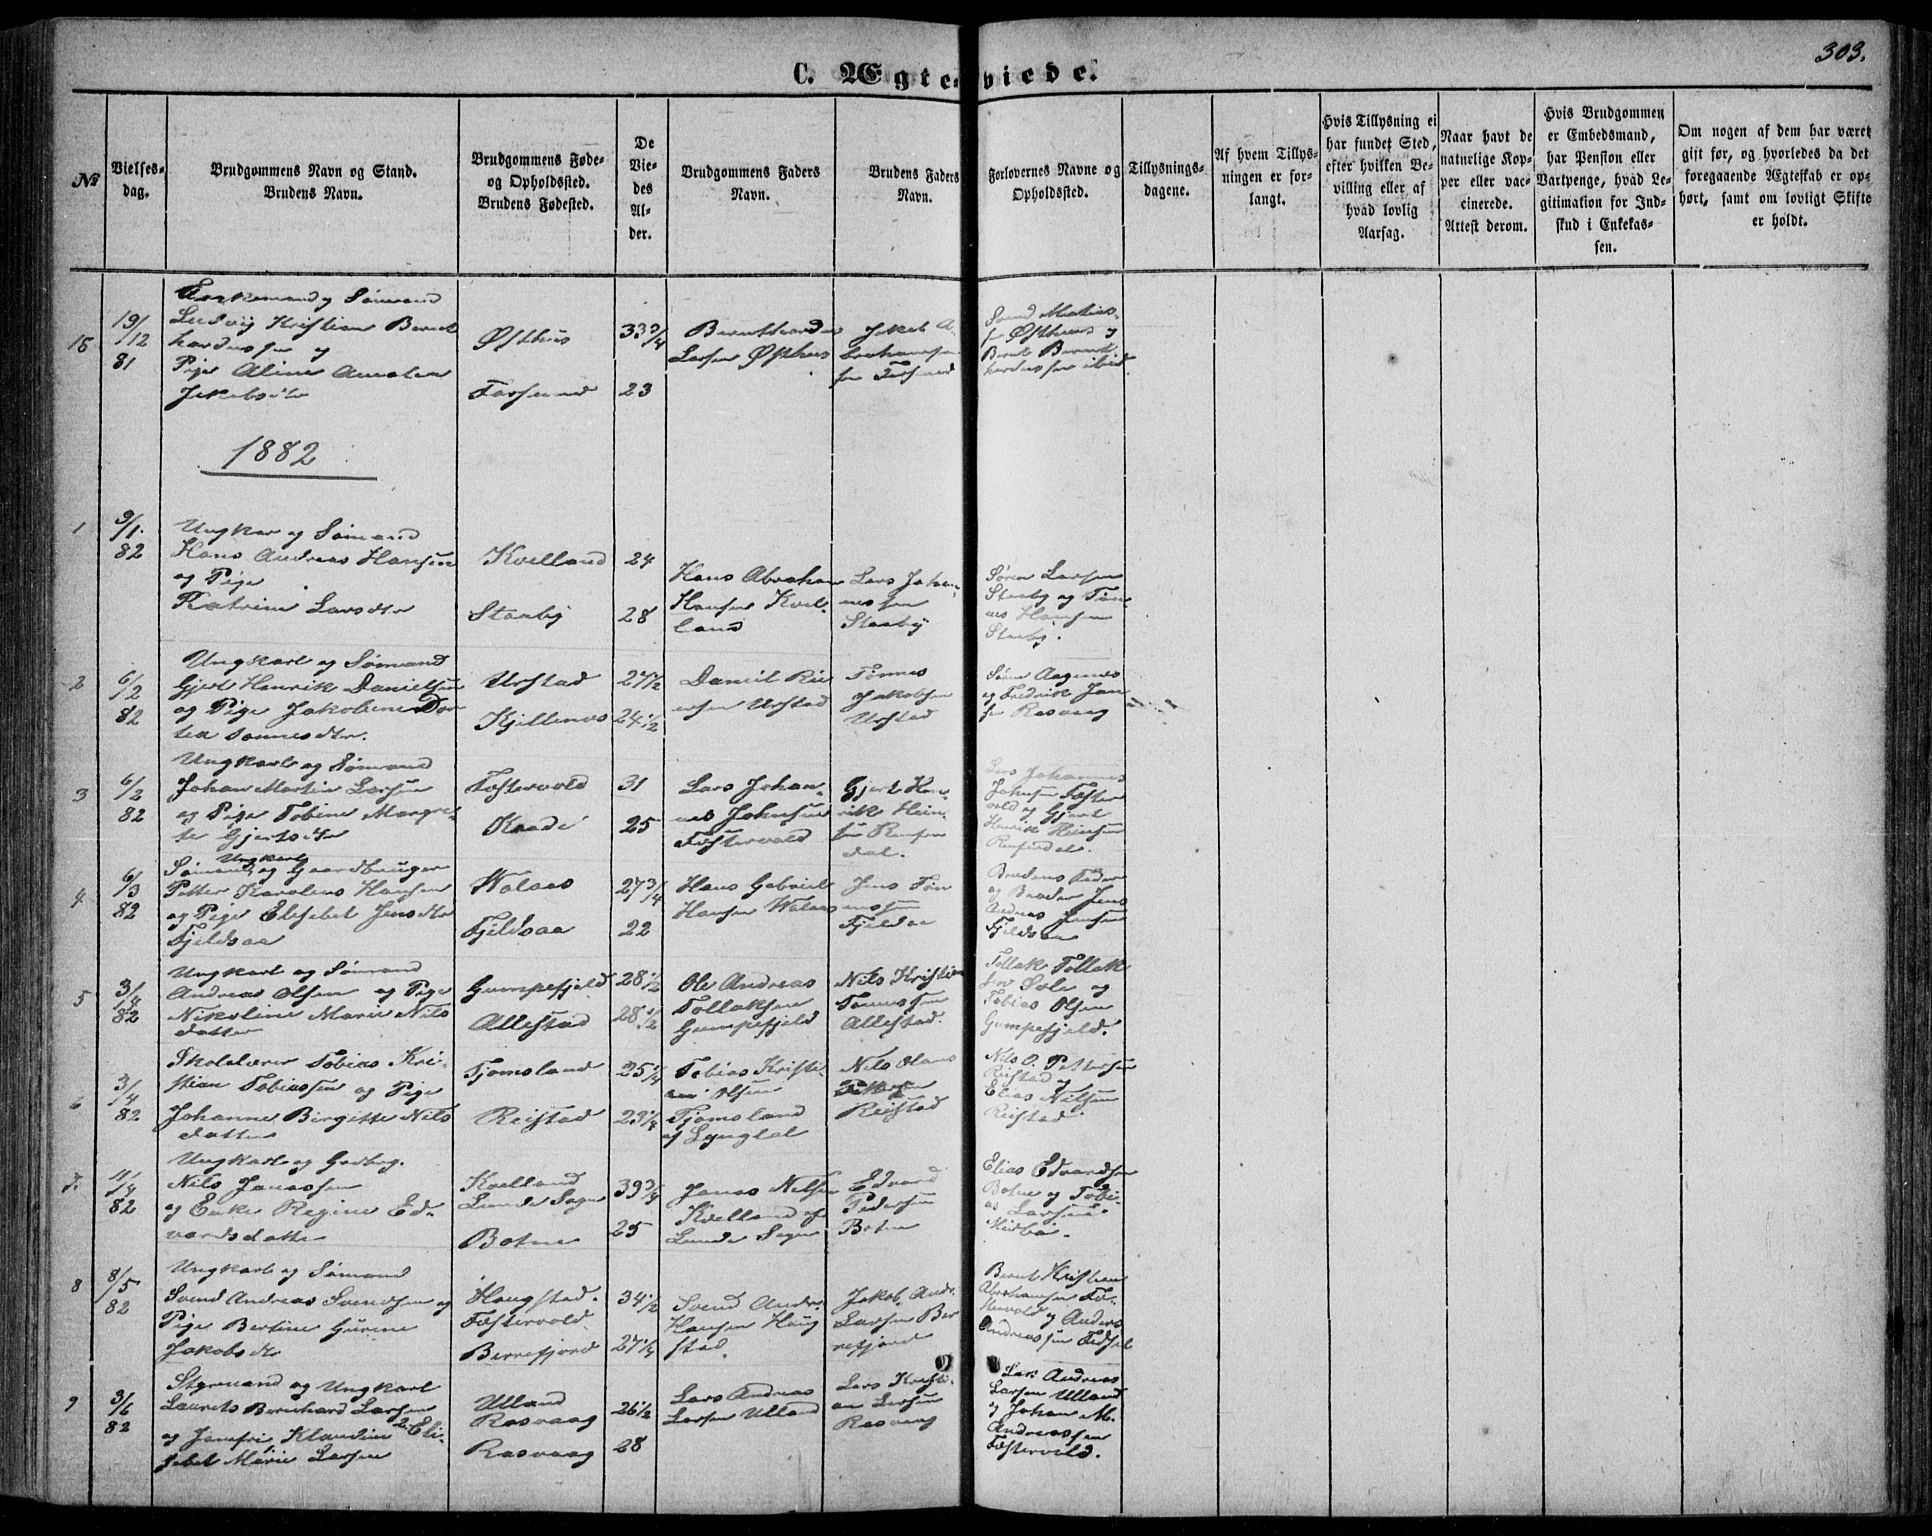 303.
C. Ægteviede.
№
Vielses-
dag.
Brudgommens Navn og Stand.
Brudens Navn.
Brudgommens Føde-
og Opholdssted.
Brudens Fødested.
De
Vie-
des
Al-
der.
Brudgommens Faders
Navn.
Brudens Faders
Navn.
Forlovernes Navne og
Opholdssted.
Tillysnings-
dagene.
Af hvem Tillys-
ningen er for-
langt.
Hvis Tillysning ei
har fundet Sted,
efter hvilken Be-
villing eller af
hvad lovlig
Aarsag.
Naar havt de
naturlige Kop-
per eller vac-
cinerede.
Attest derom.
Hvis Brudgommen
er Embedsmand,
har Pension eller
Vartpenge, hvad Le-
gitimation for Ind-
skud i Enkekas-
sen.
Om nogen af dem har været
gift før, og hvorledes da det
foregaaende Ægteskab er op-
hørt, samt om lovligt Skifte
er holdt.
15
19/12
81
Enkemand og Sømand
Ludvig Kristian Bernt
hardussen og
Pige Aline Amalia
Jakobsdtr
Østhus
Farsund
33 3/4
23
Bernthardus
Larsen Østhus
Jakob A-
brahamsen
Farsund
Svend Mathias-
sen Østhus og
Bernt Bernt
hardussen ibid.
1882
1
9/1.
82
Ungkar og Sømand
Hans Andreas Hansen
og Pige
Katrine Larsdtr
Kvelland
Staaby
24
28
Hans Abraham
Hansen Kvel-
land
Lars Johan-
nessen
Staaby
Søren Larsen
Staaby og Tøn-
nes Hansen
Staaby.
2
6/2
82
Ungkarl og Sømand
Gjert Henrik Danielsen
og Pige Jakobine Dor
tea Tønnesdtr.
Urstad
Kjellenes
27 1/2
24 1/2
Daniel Rei
ersen Urstad
Tønnes
Jakobsen
Urstad
Søren Aagenes
og Fredrik Jan
sen Rasvaag
3
6/2
82
Ungkarl og Sømand
Johan Martin Larsen
og Pige Tobine Margre-
te Gjertsdtr
Fæstervold
Kaade
31
25
Lars Johan-
nes Johnsen
Fæstervold
Gjert Hen-
rik Hein-
sen Rensen
dal.
Lars Johannes
Johnsen Fæster
vold og Gjert
Henrik Heinsen
4
6/3
82
Ungkarl
Sømand og Gaardbruger
Petter Karolius Hansen
og Pige Elisabet Jensdtr
Fjeldsaa
Walaas
Fjeldsaa
27 3/4
22
Hans Gabriel
Hansen Walaas
Jens Tøn
nessen
Fjeldsaa
Brudens Fader
og Broder Jens
Andreas Jensen
Fjeldsaa
5
3/4
82
Ungkarl og Sømand
Andreas Olsen og Pige
Nikoline Marie Nils
datter
Gumpefjeld
Allestad
28 1/2
28 1/2
Ole Andreas
Tollaksen
Gumpefjeld
Nils Kristian
Tønnessen
Allestad.
Tollak Tollak
sen Sole og
Tobias Olsen
Gumpefjeld.
6
3/4
82
Skolelærer Tobias Kri-
stian Tobiassen og Pige
Johanne Birgitte Nils
datter
Tjomsland
Reistad
25 1/4
23 1/4
Tobias Kristi-
an Olsen
Tjomsland
af Lyngdal
Nils Olaus
Pettersen
Reistad
Nils O. Pettersen
Reistad og
Elias Nilsen
Reistad
7.
11/4
82
Ungkarl og Gårdbrg.
Nils Janassen
og Enke Regine Ed-
vardsdatter
Kvelland
Lunde Sogn
Botne
39 3/4
25
Jonas Nilsen
Kvelland af
Lunde Sogn
Edvard
Pedersen
Botne
Elias Edvardsen
Botne og Tobi-
as Larsen
Midbø.
8
8/5
82
Ungkarl og Sømand
Svend Andreas Svendsen og
Pige Bertine Gurine
Jakobsdtr
Haugstad.
Fæstervold.
Berrefjord
34 1/2
27 1/4
Svend Andr.
Hansen Haug
stad.
Jakob. Andr.
Larsen Ber
refjord
Bernt Kristian
Abrahamsen Fæ-
stervold og Anders
Andreassen Fedsel
9
3/6
82
Styrmand og Ungkarl
Laurits Bernhard Larsen
og Jomfru Klaudine Eli-
sabet Marie Larsen
Ulland
Rasvaag
Rasvaag
26 1/2
28
Lars Andreas
Larsen Ulland
Lars Kristi-
an Larsen
Rasvaag
Lars Andreas
Larsen Ulland
og Johan M.
Andreassen
Fæstervold.